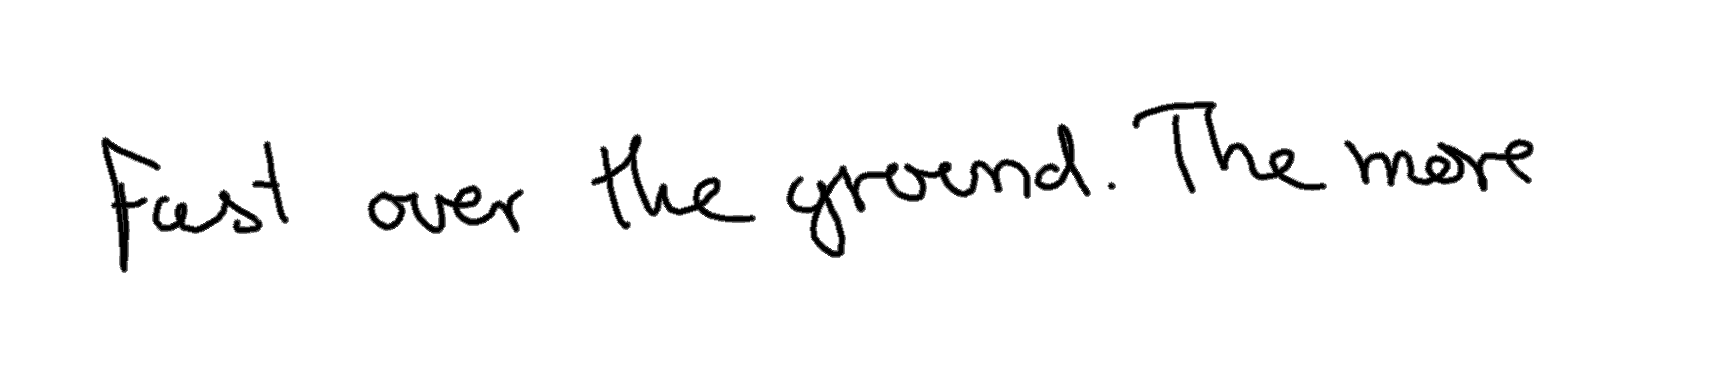 Fast over the ground. The more